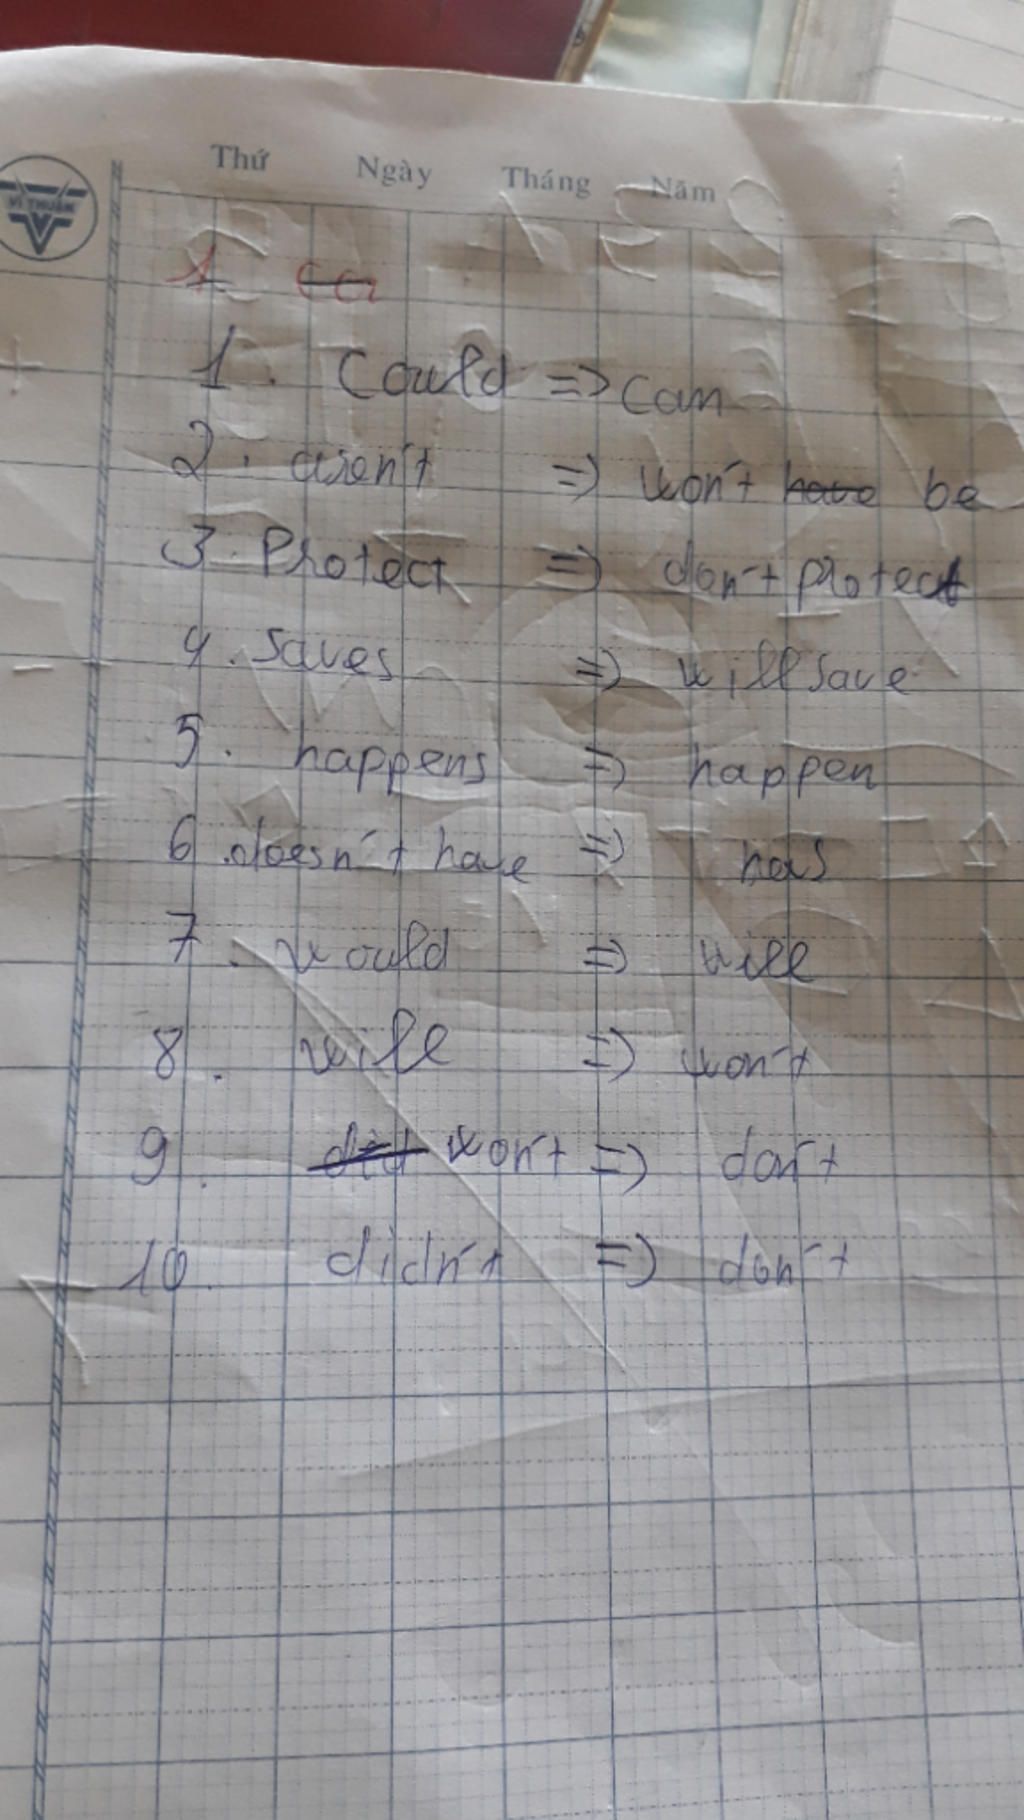 Thứ Ngày Tháng Năm
VĨ THUÂN
1.
1. Could => can
2. aren't => won't have be
3. Protect => don't protect
4. saves => will save
5. happens => happen
6. doesn't have => has
7. would => will
8. will => won't
9. did won't => don't
10. didn't => don't